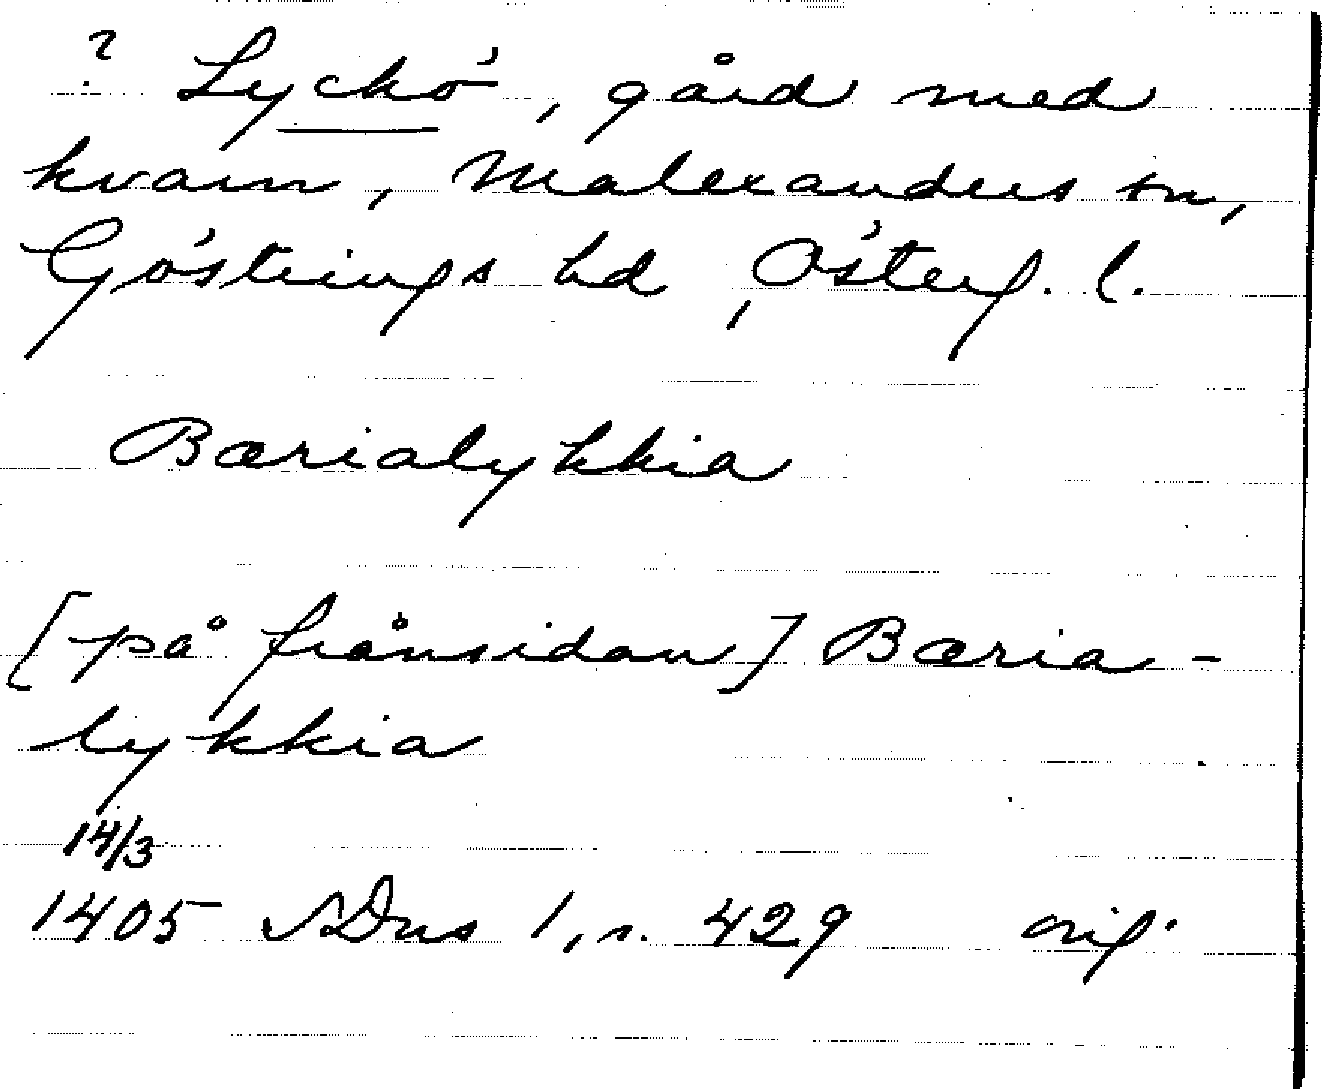 ? Lyckö, gård med
kvarn, Malexanders sn,
Göstrings hd, Österg. l.
Bærialykkia
[på frånsidan] Bæria-
lykkia
14/3
1405 SDns 1, s. 429 orig.